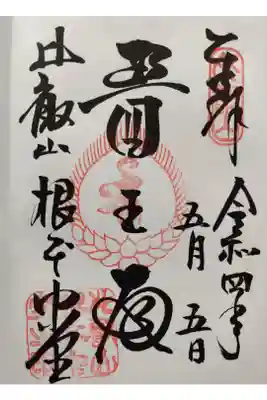 奉拝
令和四年
五月五日
醫王殿
比叡山 根本中堂